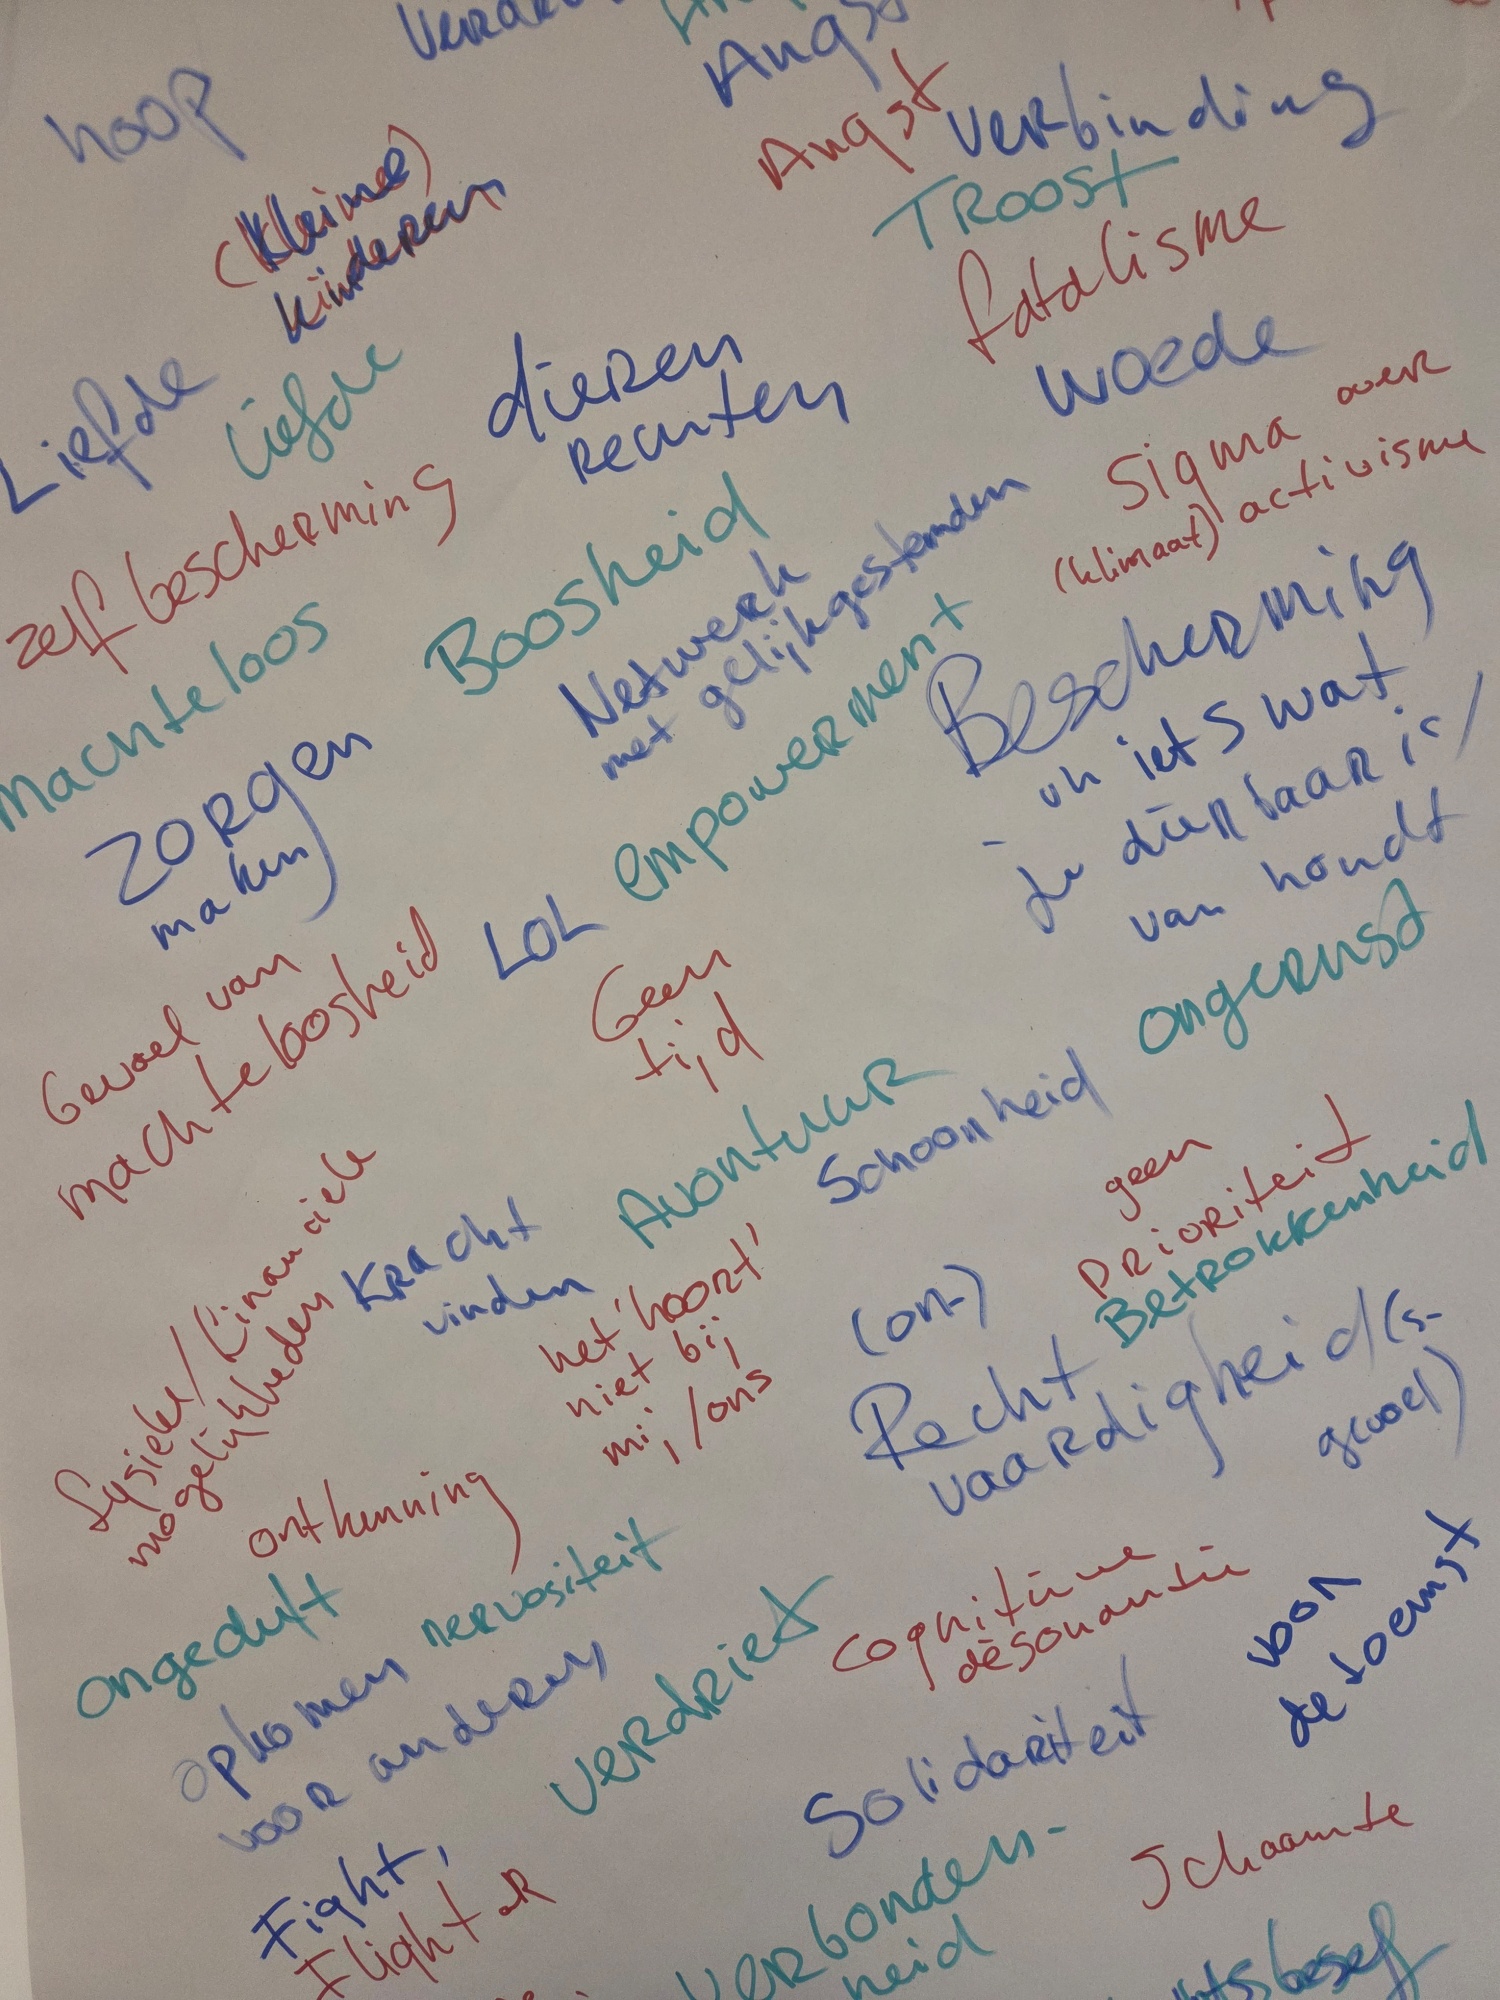 Angst
hoop
Angst
verbinding
(kleine)
kinderen
TROOST
fatalisme
Liefde
Liefde
dieren
rechten
woede
Sigma over
(klimaat) activisme
zelfbescherming
Boosheid
Netwerk
met gelijkgestemden
machteloos
empowerment
Bescherming
- vn iets wat
je dierbaar is/
van houdt
zorgen
maken
LOL
Geen
tijd
ongerust
Gevoel van
machteloosheid
Avontuur
Schoonheid
geen
prioriteit
Betrokkenheid
fysieke/financiele
mogelijkheden
Kracht
vinden
het 'hoort'
niet bij
mij/ons
(on-)
Recht
vaardigheid(s-
gevoel)
ontkenning
ongeduld
nervositeit
verdriet
cognitieve
disonantie
voor
de toemst
opkomen
voor anderen
Solidariteit
Fight,
Flight or
verbonden-
heid
Schaamte